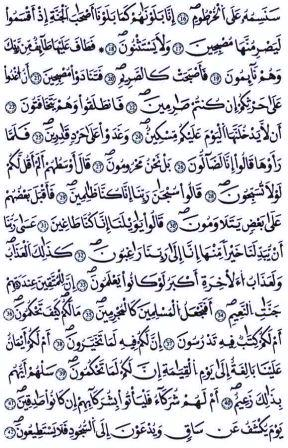 سَنَسِمُهُ عَلَى الْخُرْطُومِ ١٦ إِنَّا بَلَوْنَاهُمْ كَمَا بَلَوْنَا أَصْحَابَ الْجَنَّةِ إِذْ أَقْسَمُوا
لَيَصْرِمُنَّهَا مُصْبِحِينَ ١٧ وَلَا يَسْتَثْنُونَ ١٨ فَطَافَ عَلَيْهَا طَائِفٌ مِنْ رَبِّكَ
وَهُمْ نَائِمُونَ ١٩ فَأَصْبَحَتْ كَالصَّرِيمِ ٢٠ فَتَنَادَوْا مُصْبِحِينَ ٢١ أَنِ اغْدُوا
عَلَى حَرْثِكُمْ إِنْ كُنْتُمْ صَارِمِينَ ٢٢ فَانْطَلَقُوا وَهُمْ يَتَخَافَتُونَ ٢٣
أَنْ لَا يَدْخُلَنَّهَا الْيَوْمَ عَلَيْكُمْ مِسْكِينٌ ٢٤ وَغَدَوْا عَلَى حَرْدٍ قَادِرِينَ ٢٥ فَلَمَّا
رَأَوْهَا قَالُوا إِنَّا لَضَالُّونَ ٢٦ بَلْ نَحْنُ مَحْرُومُونَ ٢٧ قَالَ أَوْسَطُهُمْ أَلَمْ أَقُلْ لَكُمْ
لَوْلَا تُسَبِّحُونَ ٢٨ قَالُوا سُبْحَانَ رَبِّنَا إِنَّا كُنَّا ظَالِمِينَ ٢٩ فَأَقْبَلَ بَعْضُهُمْ
عَلَى بَعْضٍ يَتَلَاوَمُونَ ٣٠ قَالُوا يَا وَيْلَنَا إِنَّا كُنَّا طَاغِينَ ٣١ عَسَى رَبُّنَا
أَنْ يُبْدِلَنَا خَيْرًا مِنْهَا إِنَّا إِلَى رَبِّنَا رَاغِبُونَ ٣٢ كَذَلِكَ الْعَذَابُ
وَلَعَذَابُ الْآخِرَةِ أَكْبَرُ لَوْ كَانُوا يَعْلَمُونَ ٣٣ إِنَّ لِلْمُتَّقِينَ عِنْدَ رَبِّهِمْ
جَنَّاتِ النَّعِيمِ ٣٤ أَفَنَجْعَلُ الْمُسْلِمِينَ كَالْمُجْرِمِينَ ٣٥ مَا لَكُمْ كَيْفَ تَحْكُمُونَ ٣٦
أَمْ لَكُمْ كِتَابٌ فِيهِ تَدْرُسُونَ ٣٧ إِنَّ لَكُمْ فِيهِ لَمَا تَخَيَّرُونَ ٣٨ أَمْ لَكُمْ أَيْمَانٌ
عَلَيْنَا بَالِغَةٌ إِلَى يَوْمِ الْقِيَامَةِ إِنَّ لَكُمْ لَمَا تَحْكُمُونَ ٣٩ سَلْهُمْ أَيُّهُمْ
بِذَلِكَ زَعِيمٌ ٤٠ أَمْ لَهُمْ شُرَكَاءُ فَلْيَأْتُوا بِشُرَكَائِهِمْ إِنْ كَانُوا صَادِقِينَ ٤١
يَوْمَ يُكْشَفُ عَنْ سَاقٍ وَيُدْعَوْنَ إِلَى السُّجُودِ فَلَا يَسْتَطِيعُونَ ٤٢